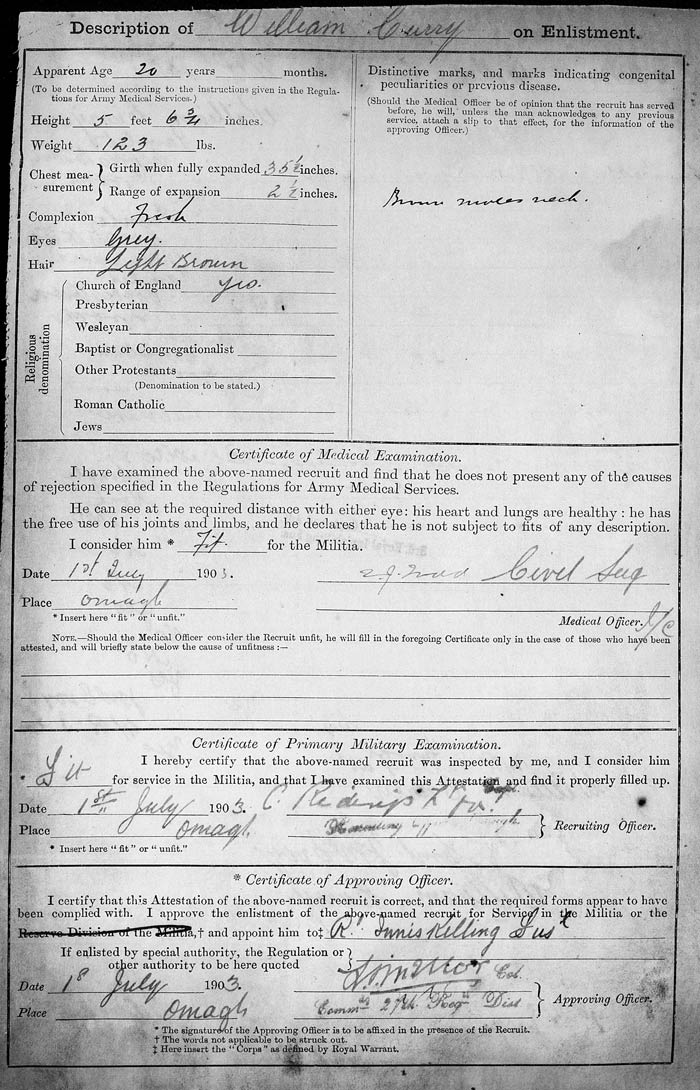 Description of William Curry on Enlistment.
Apparent Age 20 years months.
(To be determined according to the instructions given in the Regula-
tions for Army Medical Services.)
Height 5 feet 6 3/4 inches.
Weight 123 lbs.
Chest mea-
surement
Girth when fully expanded 35 1/2 inches.
Range of expansion 2 1/2 inches.
Complexion Fresh
Eyes Grey.
Hair Light Brown
Religious
denomination
Church of England yes.
Presbyterian
Wesleyan
Baptist or Congregationalist
Other Protestants
(Denomination to be stated.)
Roman Catholic
Jews
Distinctive marks, and marks indicating congenital
peculiarities or previous disease.
(Should the Medical Officer be of opinion that the recruit has served
before, he will, unless the man acknowledges to any previous
service, attach a slip to that effect, for the information of the
approving Officer.)
Brown moles neck.
Certificate of Medical Examination.
I have examined the above-named recruit and find that he does not present any of the causes
of rejection specified in the Regulations for Army Medical Services.
He can see at the required distance with either eye: his heart and lungs are healthy: he has
the free use of his joints and limbs, and he declares that he is not subject to fits of any description.
I consider him * Fit. for the Militia.
Date 1st July 1903.
Civil Surg
Place Omagh
* Insert here "fit" or "unfit."
Medical Officer. I/C
NOTE.—Should the Medical Officer consider the Recruit unfit, he will fill in the foregoing Certificate only in the case of those who have been
attested, and will briefly state below the cause of unfitness :—
Certificate of Primary Military Examination.
I hereby certify that the above-named recruit was inspected by me, and I consider him
* Fit for service in the Militia, and that I have examined this Attestation and find it properly filled up.
Date 1st July 1903
Place Omagh
Recruiting Officer.
* Insert here "fit" or "unfit."
* Certificate of Approving Officer.
I certify that this Attestation of the above-named recruit is correct, and that the required forms appear to have
been complied with. I approve the enlistment of the above-named recruit for Service in the Militia or the
Reserve Division of the Militia,† and appoint him to‡ R. Inniskilling Fus
If enlisted by special authority, the Regulation or
other authority to be here quoted
Col.
Date 1st July 1903.
Place Omagh
Commdg 27th Regtl Dist
Approving Officer.
* The signature of the Approving Officer is to be affixed in the presence of the Recruit.
† The words not applicable to be struck out.
‡ Here insert the "Corps" as defined by Royal Warrant.